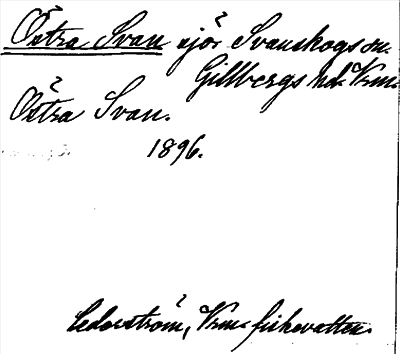 Östra Svan sjör Svanskogs sn.
Gillbergs hd. Vrm.
Östra Svan.
1896.
Cederström, Vrm. fiskevatten.